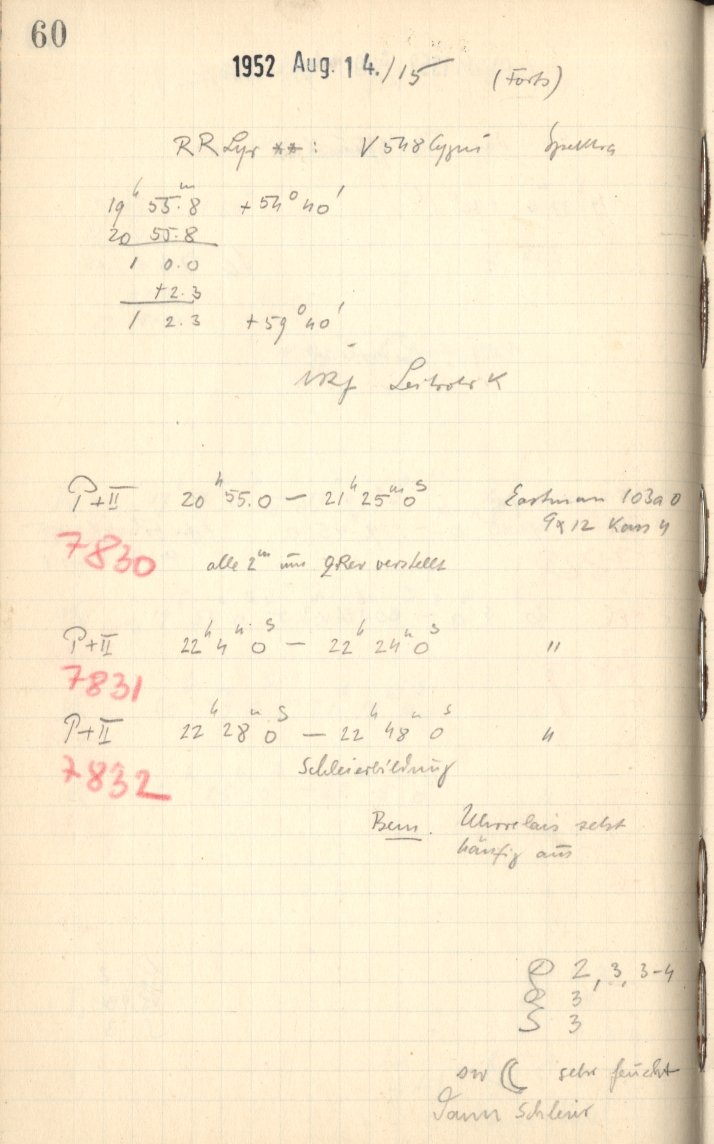 60
1952 Aug. 14./15 (Forts)
RR Lyr **: V 548 Cygni Spektra
19h 55m.8 +54° 40'
20 55.8
1 0.0
+2.3
1 2.3 +59° 40'
Leitrohr K
P+II 20h 55.0 — 21h 25m 0s Eastman 103a0
9x12 Kass 4
7830 alle 2m um Rev verstellt
P+II 22h 4m 0s — 22h 24m 0s "
7831
P+II 22h 28m 0s — 22h 48m 0s "
7832 Schleierbildung
Bem. Uhrrelais setzt
häufig aus
D 2, 3, 3-4
R 3
S 3
☾ sehr feucht
Dann Schleier